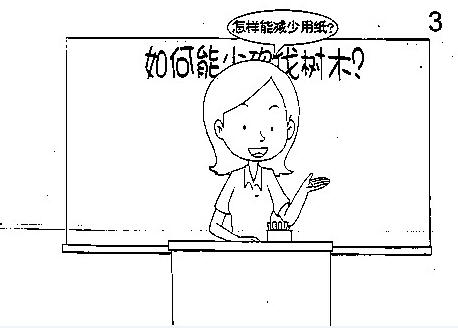 怎样能减少用纸?
3
如何能少砍伐树木?